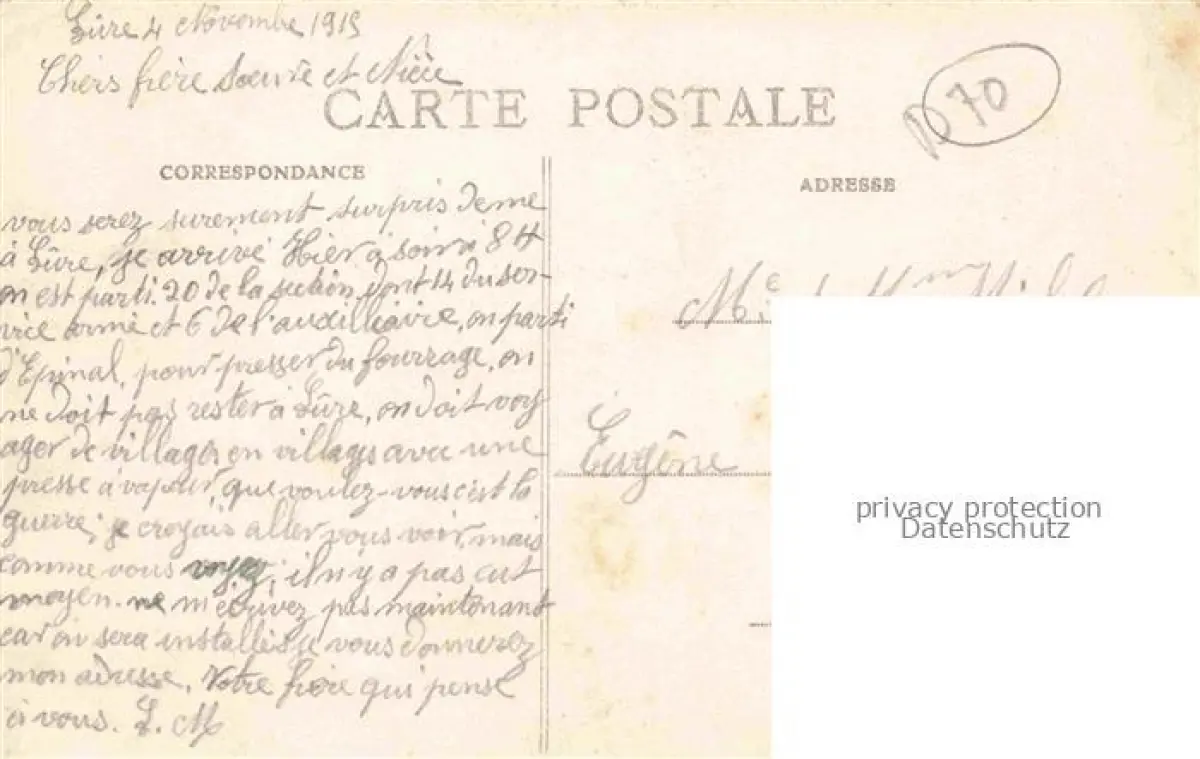 Lure 4 Novembre 1915
Chers frère Soeure et Nièce
CARTE POSTALE
D 70
CORRESPONDANCE
ADRESSE
vous serez surement surpris de me
à Lûre, je arrivé Hier à soir à 8 H
on est parti 20 de la section dont 14 du ser-
vice armé et 6 de l'auxilliaire, on parti
d'Epinal, pour presser du fourrage, on
ne doit pas rester à Lûre, on doit voy
ager de villages en villages avec une
presse à vapeur, que voulez-vous c'est la
guerre, je croyais aller vous voir, mais
comme vous voyez, il n'y a pas eut
moyen. ne m'écrivez pas maintenant
car on sera installés je vous donnerez
mon adresse. Votre frère qui pense
à vous. L. M
Eugène
privacy protection
Datenschutz